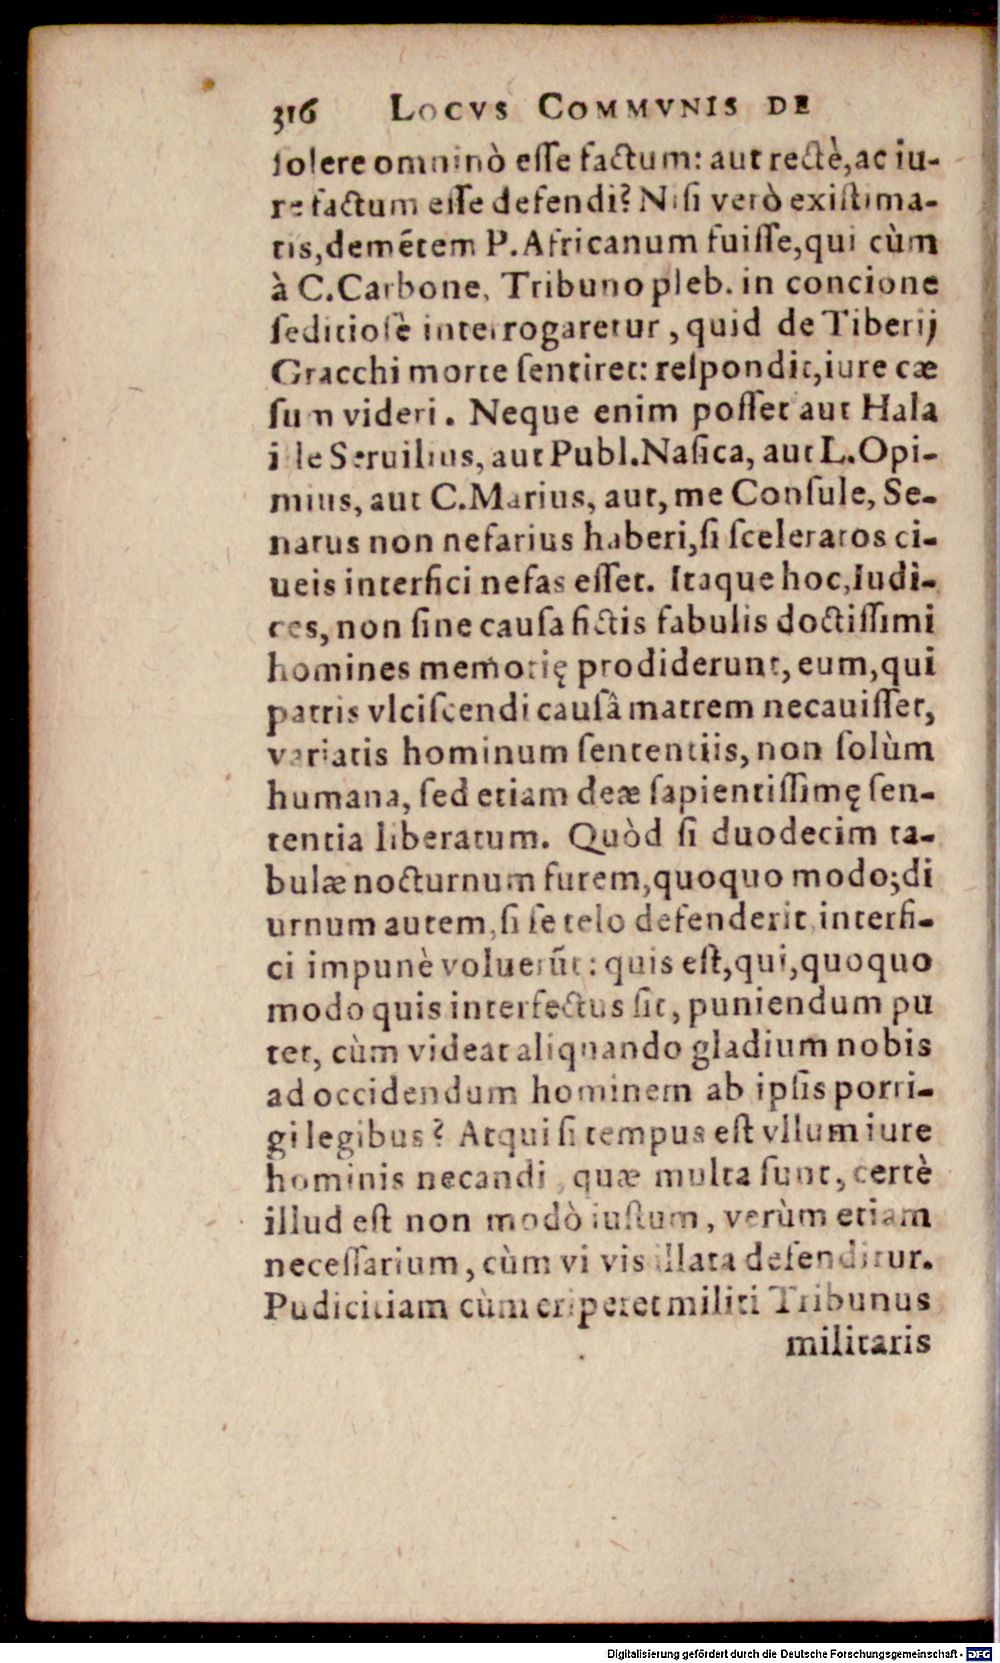 316 LOCVS COMMVNIS DE
ſolere omninò eſſe factum: aut rectè, ac iu-
re factum eſſe defendi? Niſi verò exiſtima-
tis, demẽtem P. Africanum fuiſſe, qui cùm
à C. Carbone, Tribuno pleb. in concione
ſeditioſè interrogaretur, quid de Tiberij
Gracchi morte ſentiret: reſpondit, iure cæ
ſum videri. Neque enim poſſet aut Hala
ille Seruilius, aut Publ. Naſica, aut L. Opi-
mius, aut C. Marius, aut, me Conſule, Se-
natus non nefarius haberi, ſi ſceleratos ci-
ueis interfici nefas eſſet. Itaque hoc, Iudi-
ces, non ſine cauſa fictis fabulis doctiſſimi
homines memorię prodiderunt, eum, qui
patris vlciſcendi cauſâ matrem necauiſſet,
variatis hominum ſententiis, non ſolùm
humana, ſed etiam deæ ſapientiſſimę ſen-
tentia liberatum. Quòd ſi duodecim ta-
bulæ nocturnum furem, quoquo modo; di
urnum autem, ſi ſe telo defenderit, interfi-
ci impunè voluerũt: quis eſt, qui, quoquo
modo quis interfectus ſit, puniendum pu
tet, cùm videat aliquando gladium nobis
ad occidendum hominem ab ipſis porri-
gi legibus? Atqui ſi tempus eſt vllum iure
hominis necandi, quæ multa ſunt, certè
illud eſt non modò iuſtum, verùm etiam
neceſſarium, cùm vi vis illata defenditur.
Pudicitiam cùm eriperet militi Tribunus
militaris
Digitalisierung gefördert durch die Deutsche Forschungsgemeinschaft - DFG